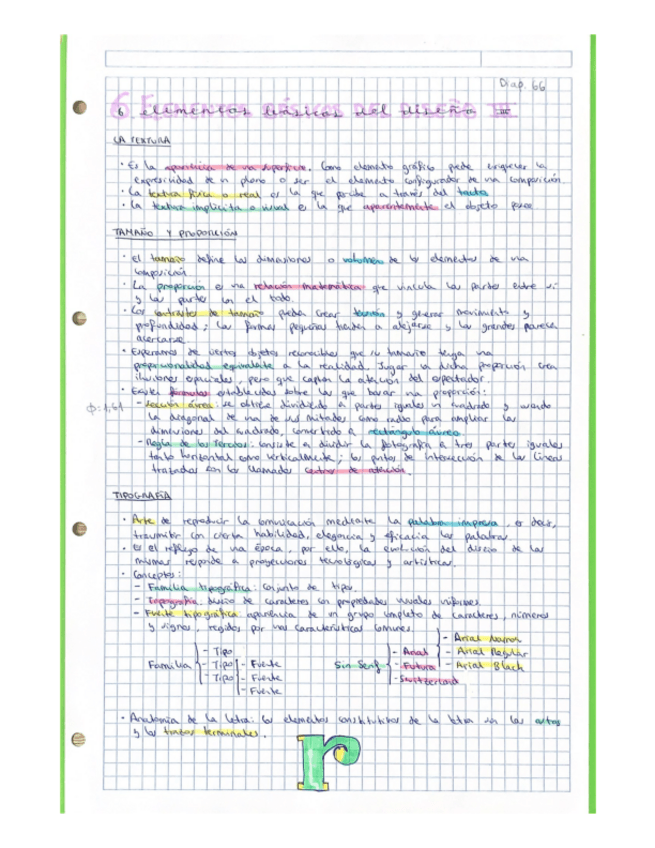 Diap. 66
6. ELEMENTOS BÁSICOS DEL DISEÑO III
LA TEXTURA
· Es la apariencia de una superficie. Como elemento gráfico puede enriquecer la
expresividad de un plano o ser el elemento configurador de una composición.
· La textura física o real es la que percibe a través del tacto.
· La textura implícita o visual es la que aparentemente el objeto posee.
TAMAÑO Y PROPORCIÓN
· El tamaño define las dimensiones o volumen de los elementos de una
composición.
· La proporción es una relación matemática que vincula las partes entre sí
y las partes con el todo.
· Los contrastes de tamaño pueden crear tensión y generar movimiento y
profundidad; las formas pequeñas tienden a alejarse y las grandes parecen
acercarse.
· Esperamos de ciertos objetos reconocibles que su tamaño tenga una
proporcionalidad equivalente a la realidad. Jugar con dicha proporción crea
ilusiones espaciales, pero que captan la atención del espectador.
· Existen fórmulas establecidas sobre las que basar una proporción:
Φ=1,61
- Sección áurea: se obtiene dividiendo a partes iguales un cuadrado y usando
la diagonal de una de sus mitades como radio para ampliar las
dimensiones del cuadrado, convertido a rectángulo áureo.
- Regla de los Tercios: consiste a dividir la fotografía a tres partes iguales
tanto horizontal como verticalmente; los puntos de intersección de las líneas
trazadas son los llamados centros de atención.
TIPOGRAFÍA
· Arte de reproducir la comunicación mediante la palabra impresa, es decir,
transmitir con cierta habilidad, elegancia y eficacia las palabras.
· Es el reflejo de una época, por ello, la evolución del diseño de las
mismas responde a proyecciones tecnológicas y artísticas.
· Conceptos:
- Familia tipográfica: conjunto de tipos.
- Tipografía: diseño de caracteres con propiedades visuales uniformes.
- Fuente tipográfica: apariencia de un grupo completo de caracteres, números
y signos, regidos por unas características comunes.
Familia
- Tipo
- Tipo
- Tipo
- Fuente
- Fuente
- Fuente
Sin Serif
- Arial
- Futura
- Switzerland
- Arial Narrow
- Arial Regular
- Arial Black
· Anatomía de la Letra: los elementos constitutivos de la letra son las astas
y los trazos terminales.
r